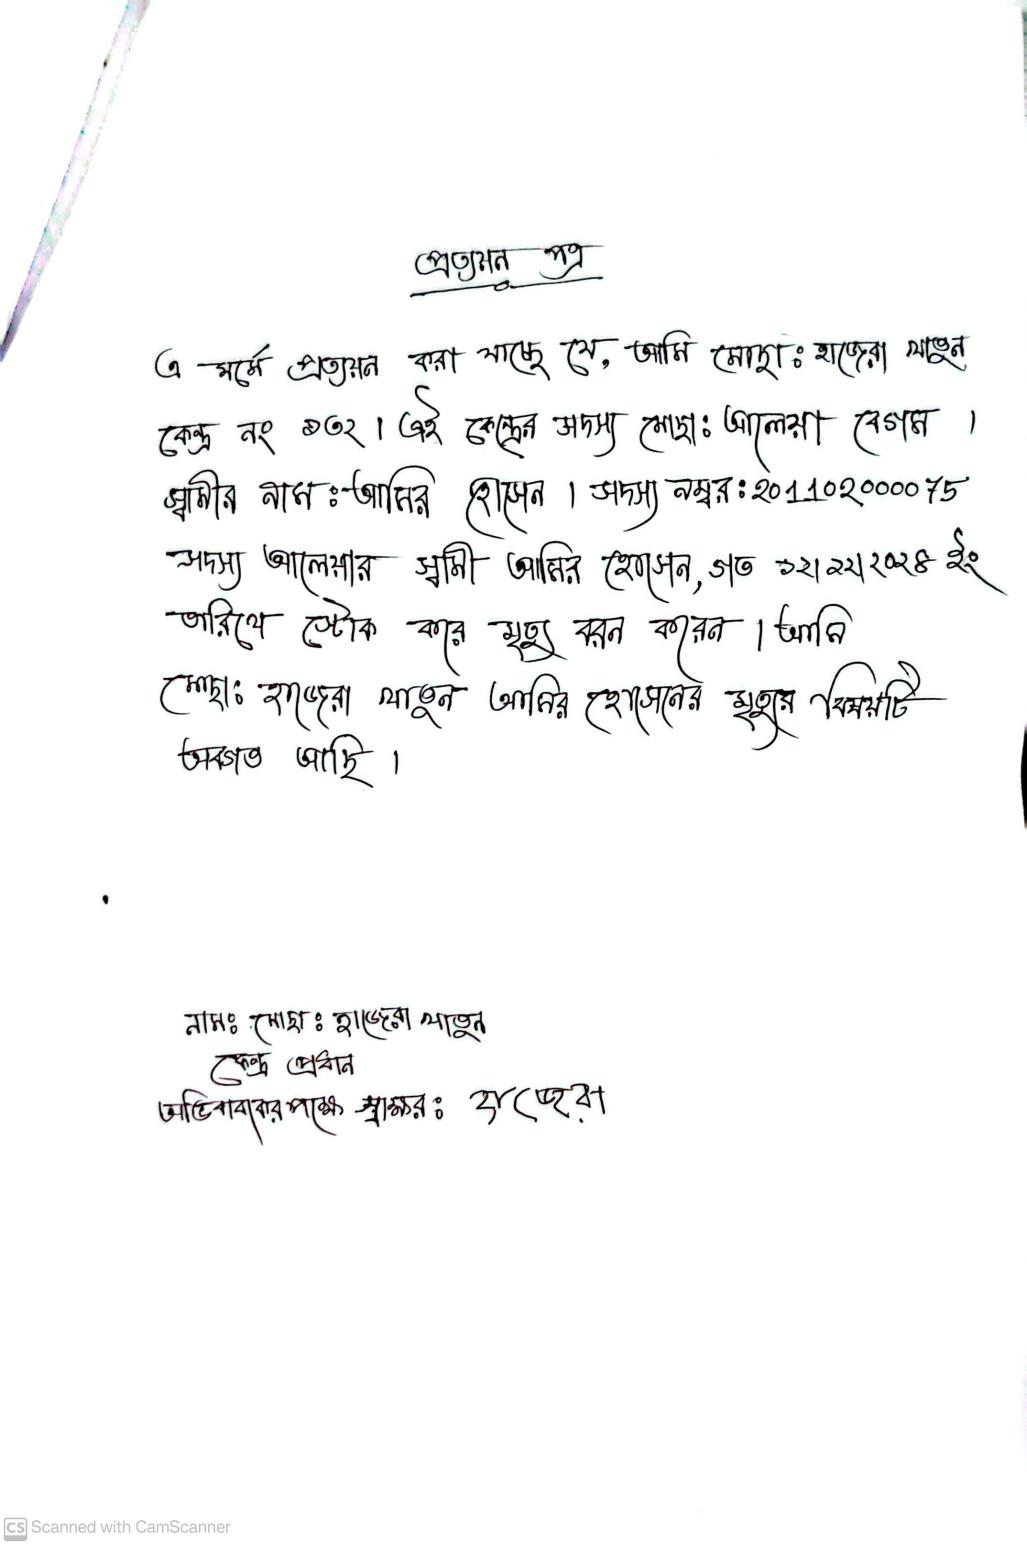 প্রত্যয়ন পত্র
এ মর্মে প্রত্যয়ন করা যাচ্ছে যে, আমি মোছা: হাজেরা খাতুন
কেন্দ্র নং ১৩২। এই কেন্দ্রের সদস্য মোছা: আলেয়া বেগম ।
স্বামীর নাম :- আমির হোসেন । সদস্য নম্বর : 201102000075
সদস্য আলেয়ার স্বামী আমির হোসেন, গত ইং
তারিখে স্টোক করে মৃত্যু বরন করেন । আমি
মোছা: হাজেরা খাতুন আমির হোসেনের মৃত্যুর বিষয়টি
অবগত আছি ।
নাম: মোছা: হাজেরা খাতুন
কেন্দ্র প্রধান
অভিবাবকের পক্ষে স্বাক্ষর : হাজেরা
CS Scanned with CamScanner